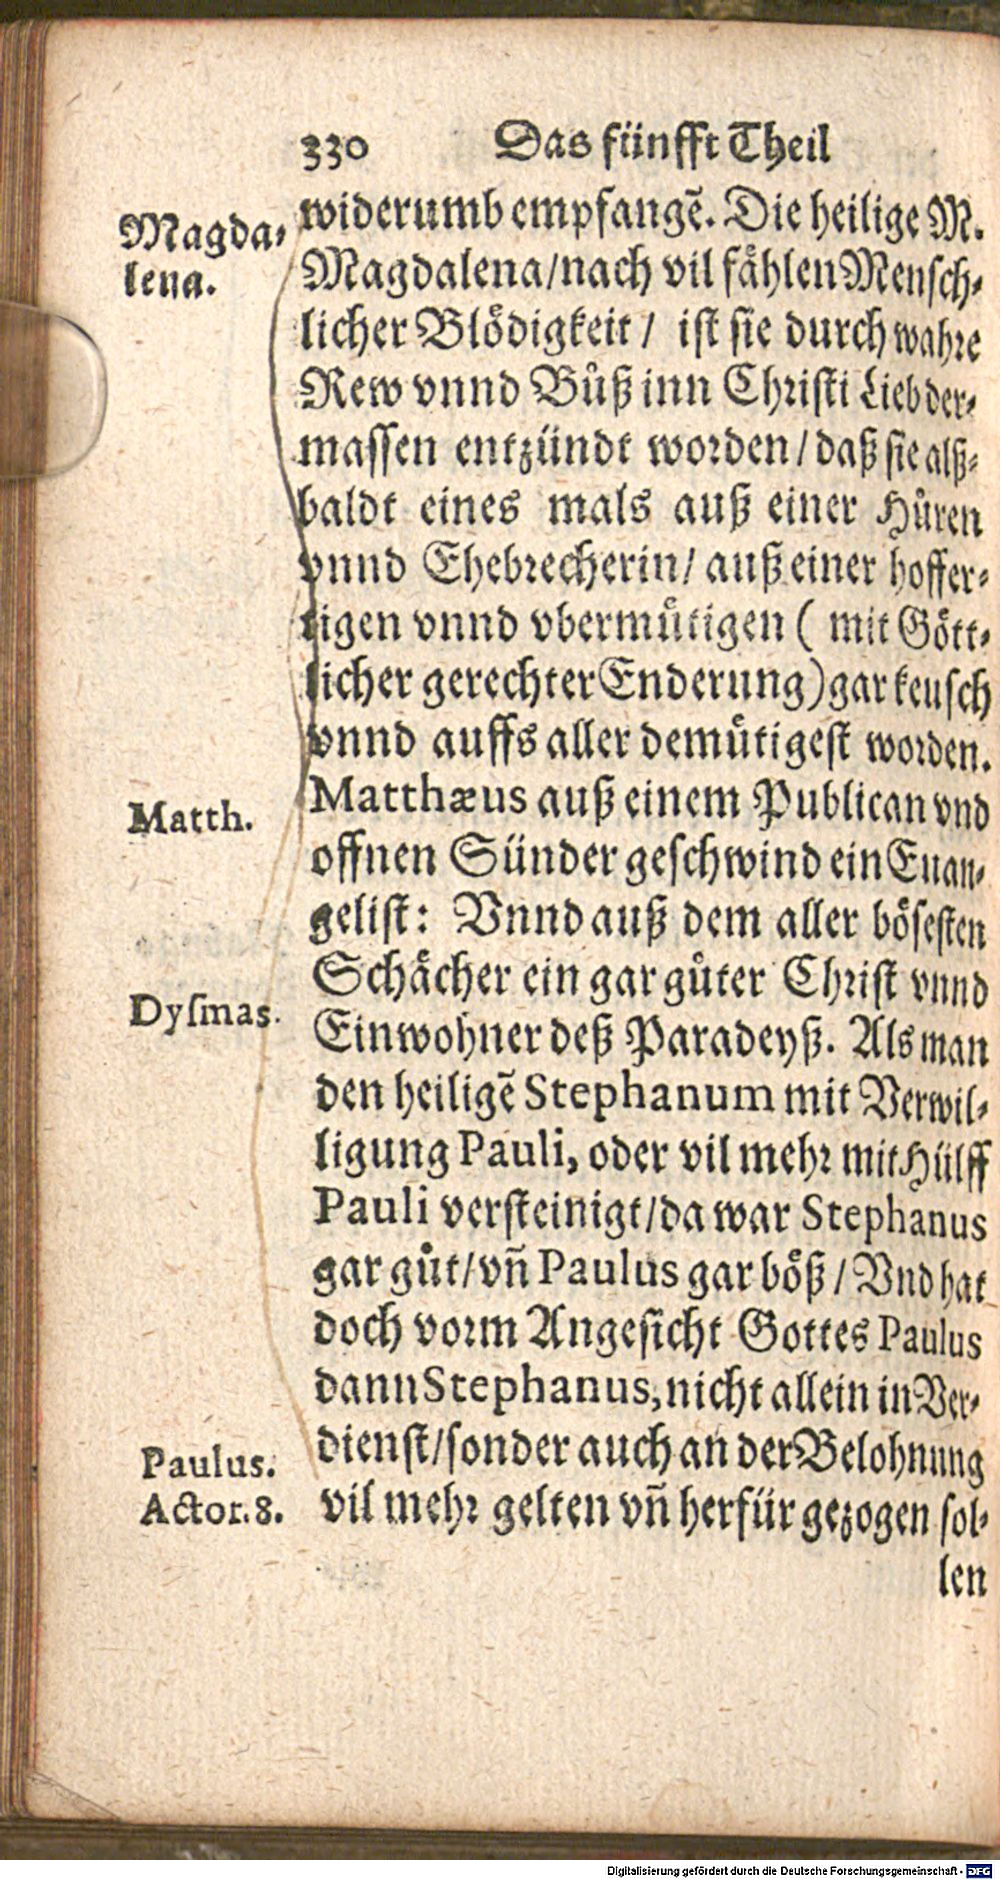 330 Das fünfft Theil
widerumb empfangẽ. Die heilige M.
Magda-
lena.
Magdalena/nach vil fåhlen Mensch-
licher Blödigkeit/ ist sie durch wahre
Rew vnnd Bůß inn Christi Lieb der-
massen entzündt worden/daß sie alß-
baldt eines mals auß einer Hůren
vnnd Ehebrecherin/ auß einer hoffer-
tigen vnnd vbermůtigen ( mit Gött-
licher gerechter Enderung) gar keusch
vnnd auffs aller demůtigest worden.
Matth.
Matthæus auß einem Publican vnd
offnen Sünder geschwind ein Euan-
gelist: Vnnd auß dem aller bösesten
Schåcher ein gar gůter Christ vnnd
Dysmas.
Einwohner deß Paradeyß. Als man
den heiligẽ Stephanum mit Verwil-
ligung Pauli, oder vil mehr mit Hülff
Pauli versteinigt/da war Stephanus
gar gůt/vñ Paulus gar böß/Vnd hat
doch vorm Angesicht Gottes Paulus
dann Stephanus, nicht allein in Ver-
dienst/sonder auch an der Belohnung
Paulus.
Actor. 8.
vil mehr gelten vñ herfür gezogen sol-
len
Digitalisierung gefördert durch die Deutsche Forschungsgemeinschaft - DFG